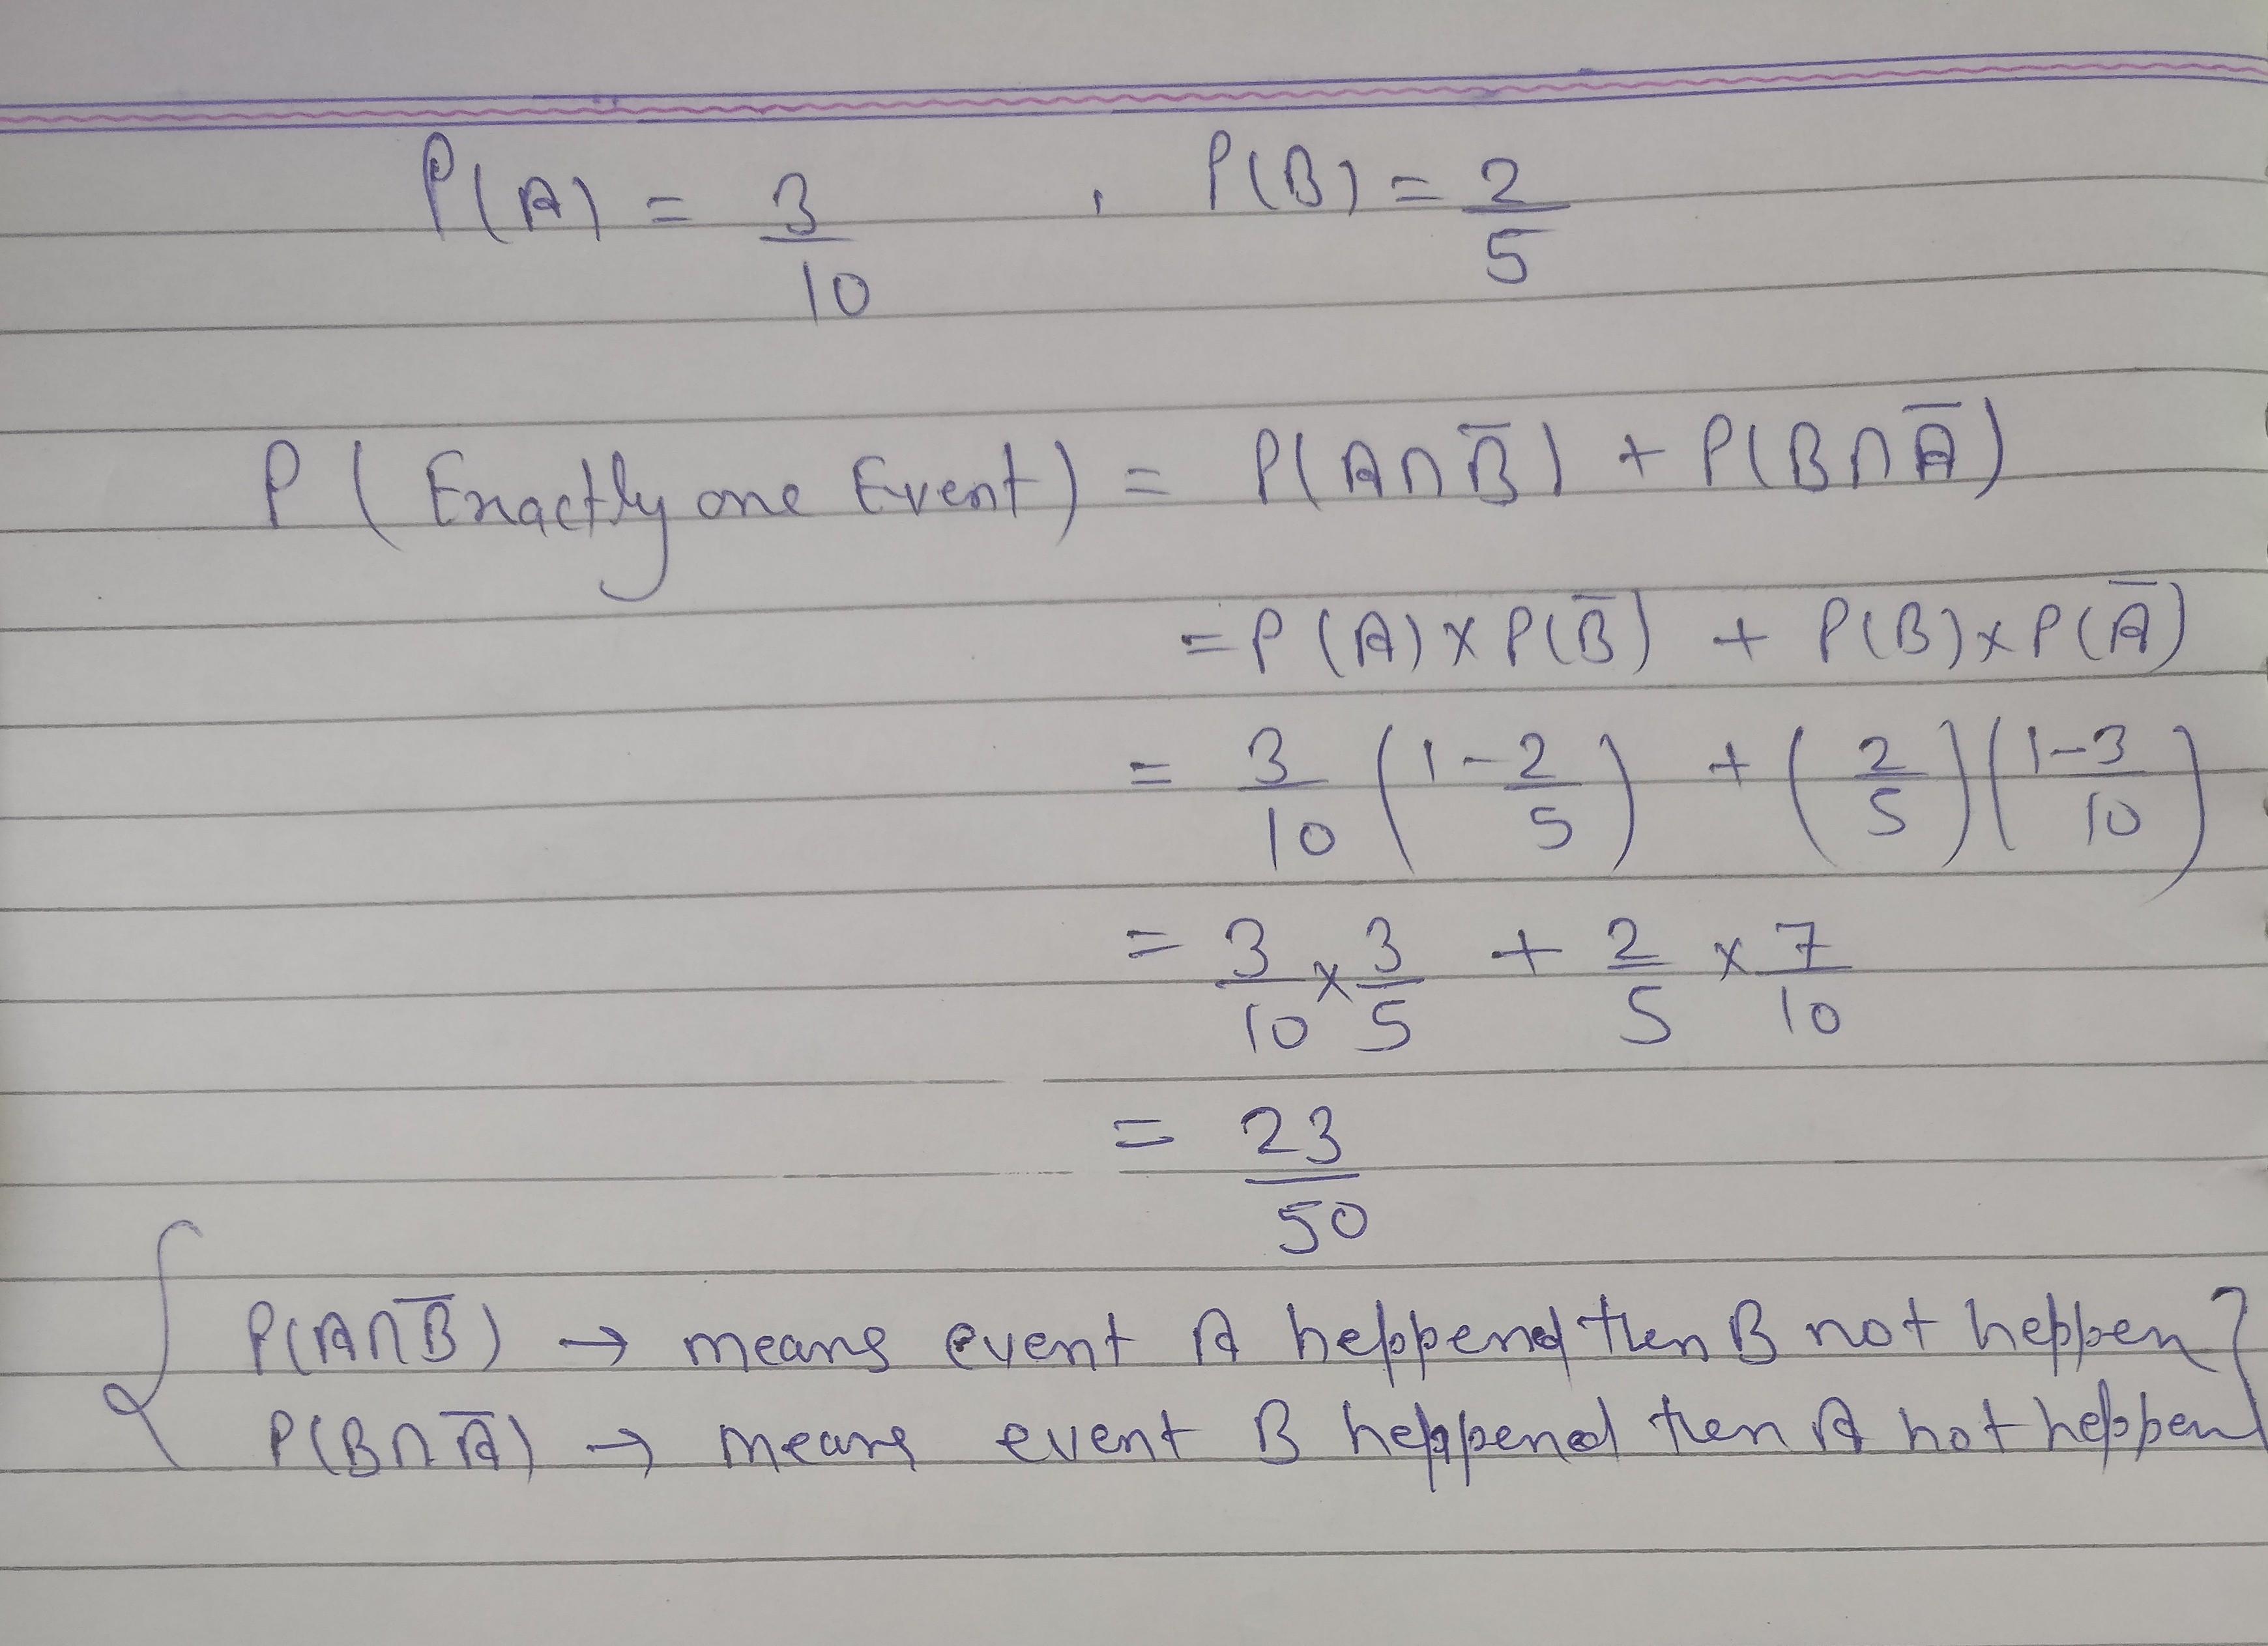 P(A) = 3/10 , P(B) = 2/5
P (Exactly one Event) = P(A∩B̅) + P(B∩A̅)
= P(A) x P(B̅) + P(B) x P(A̅)
= 3/10 (1 - 2/5) + (2/5) (1 - 3/10)
= 3/10 x 3/5 + 2/5 x 7/10
= 23/50
{ P(A∩B̅) → means event A heppened then B not heppen }
P(B∩A̅) → means event B heppened then A not heppen